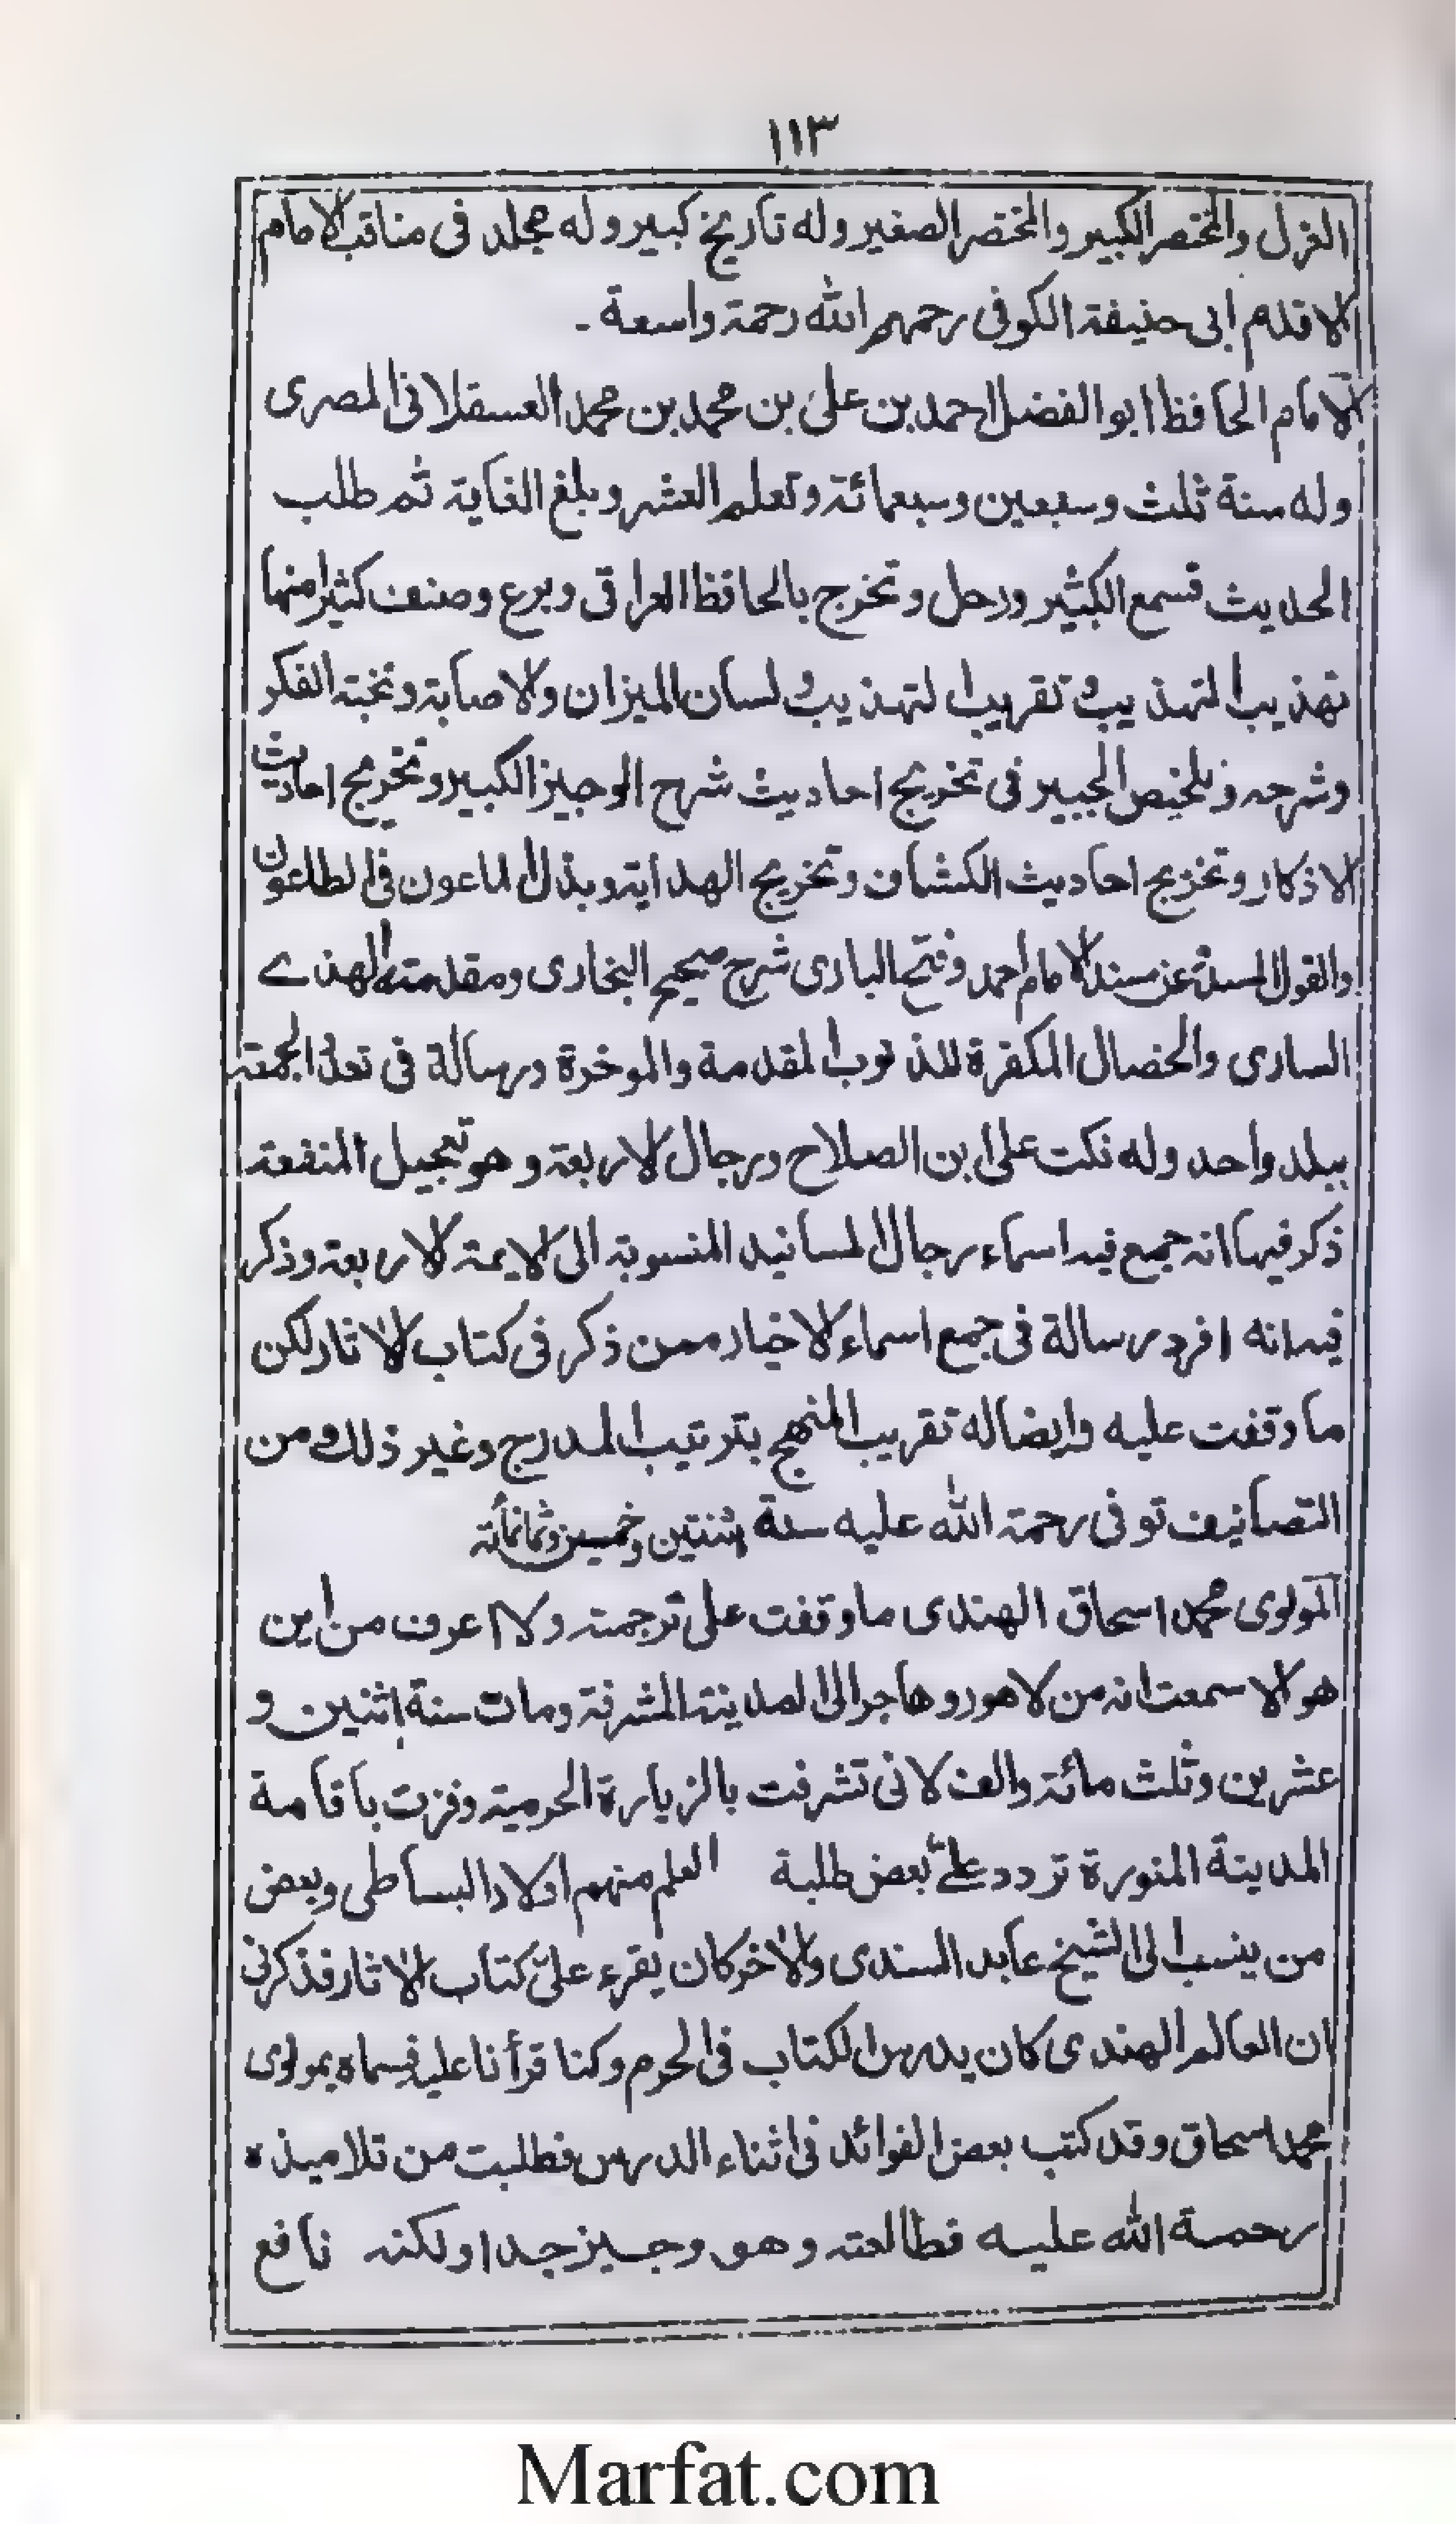 ١١٣
الغزل والمختصر الكبير والمختصر الصغير وله تاريخ كبير وله مجلد فى مناقب الامام
الاقدم ابى حنيفة الكوفى رحمهم الله رحمة واسعة -
الامام الحافظ ابو الفضل احمد بن على بن محمد بن محمد العسقلانى المصرى
وله سنة ثلث وسبعين وسبعمائة وتعلم العشر وبلغ الغاية ثم طلب
الحديث فسمع الكثير ورحل وتخرج بالحافظ العراقى وبرع وصنف كثيرا منها
تهذيب التهذيب وتقريب التهذيب ولسان الميزان والاصابة ونخبة الفكر
وشرحه وتلخيص الحبير فى تخريج احاديث شرح الوجيز الكبير وتخريج احاديث
الاذكار وتخريج احاديث الكشاف وتخريج الهداية وبذل الماعون فى الطاعون
والقول المسدد عن مسند الامام احمد وفتح البارى شرح صحيح البخارى ومقدمته الهدے
السارى والخصال المكفرة للذنوب المقدمة والموخرة ورسالة فى تعدد الجمعة
ببلد واحد وله نكت على ابن الصلاح ورجال الاربعة وهو تعجيل المنفعة
ذكر فيها انه جمع فيه اسماء رجال المسانيد المنسوبة الى الايمة الاربعة وذكر
فيه انه افرد رسالة فى جمع اسماء الاخيار ممن ذكر فى كتاب الاثار لكن
ما وقفت عليه وايضا له تقريب المنهج بترتيب المدرج وغير ذلك ومن
التصانيف توفى رحمة الله عليه سنة اثنتين وخمسين وثمانمأئة
المولوى محمد اسحاق الهندى ما وقفت على ترجمته ولا اعرف من اين
هو الا سمعت انه من لاهور وهاجر الى المدينة المشرفة ومات سنة اثنين و
عشرين وثلث مائة والف لانى تشرفت بالزيارة الحرمية وفزت باقامة
المدينة المنورة تردد علىّ بعض طلبة العلم منهم اولاد البساطى وبعض
من ينسب الى الشيخ عابد السندى والاخر كان يقرء علىّ كتاب الاثار فذكرنى
ان العالم الهندى كان يدرس الكتاب فى الحرم وكنا قرأنا عليه فسماه بمولوى
محمد اسحاق وقد كتب بعض الفوائد فى اثناء الدرس فطلبت من تلاميذه
رحمة الله عليه فطالعته وهو وجيز جدا ولكنه نافع
Marfat.com